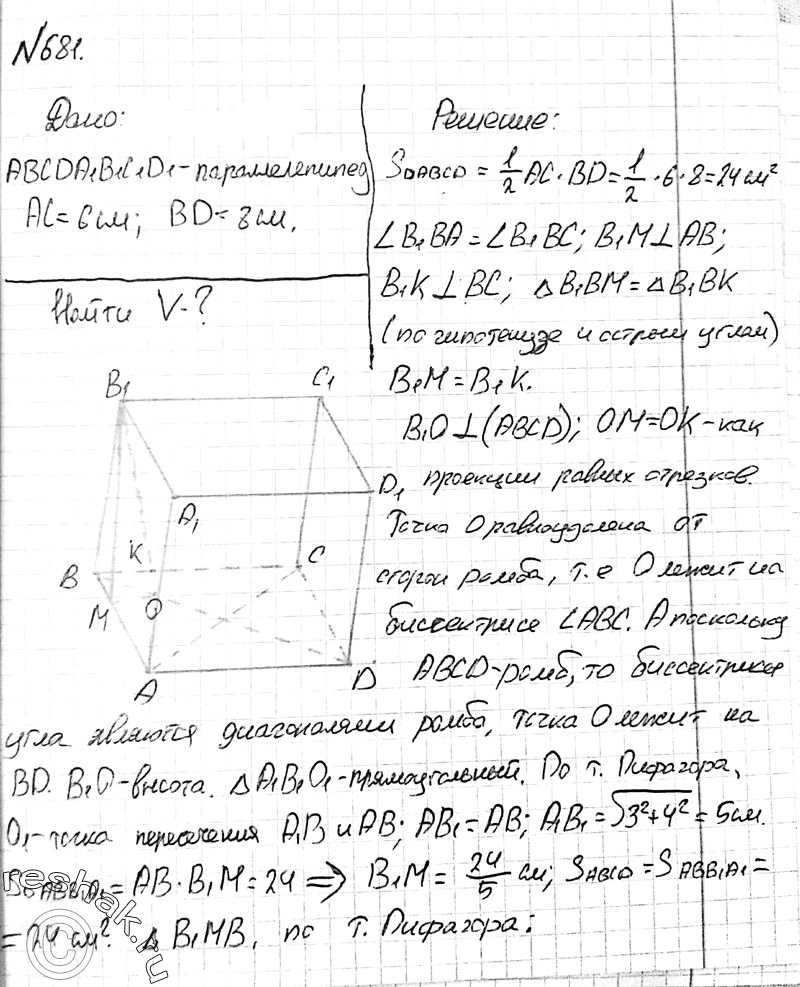 №681.
Дано:
ABCDA₁B₁C₁D₁-параллелепипед
AC=6см; BD=8см.
Найти V-?
Решение:
S▱ABCD = 1/2 AC·BD = 1/2 ·6·8=24см²
∠B₁BA=∠B₁BC; B₁M⊥AB;
B₁K⊥BC; △B₁BM=△B₁BK
(по гипотенузе и острым углам)
B₁M=B₁K.
B₁O⊥(ABCD); OM=OK-как
проекции равных отрезков.
Точка O равноудалена от
сторон ромба, т.е O лежит на
биссектрисе ∠ABC. А поскольку
ABCD-ромб, то биссектрисы
угла являются диагоналями ромба, точка O лежит на
BD. B₁O-высота. △A₁B₁O₁-прямоугольный. По т. Пифагора,
O₁-точка пересечения A₁B и AB; AB₁=AB; A₁B₁=√3²+4² = 5см.
S▱ABB₁A₁=AB·B₁M=24 ⇒ B₁M= 24/5 см; SABCD=SABB₁A₁=
=24см². △B₁MB, по т. Пифагора:
B₁
C₁
D₁
A₁
K
B
C
M
O
A
D
© reshak.ru